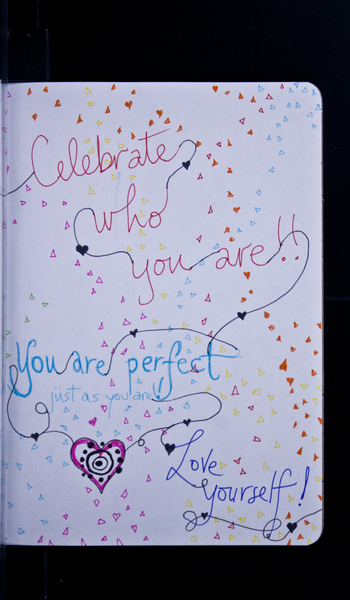 Celebrate
who
you are!!
You are perfect
just as you are!
Love
yourself!